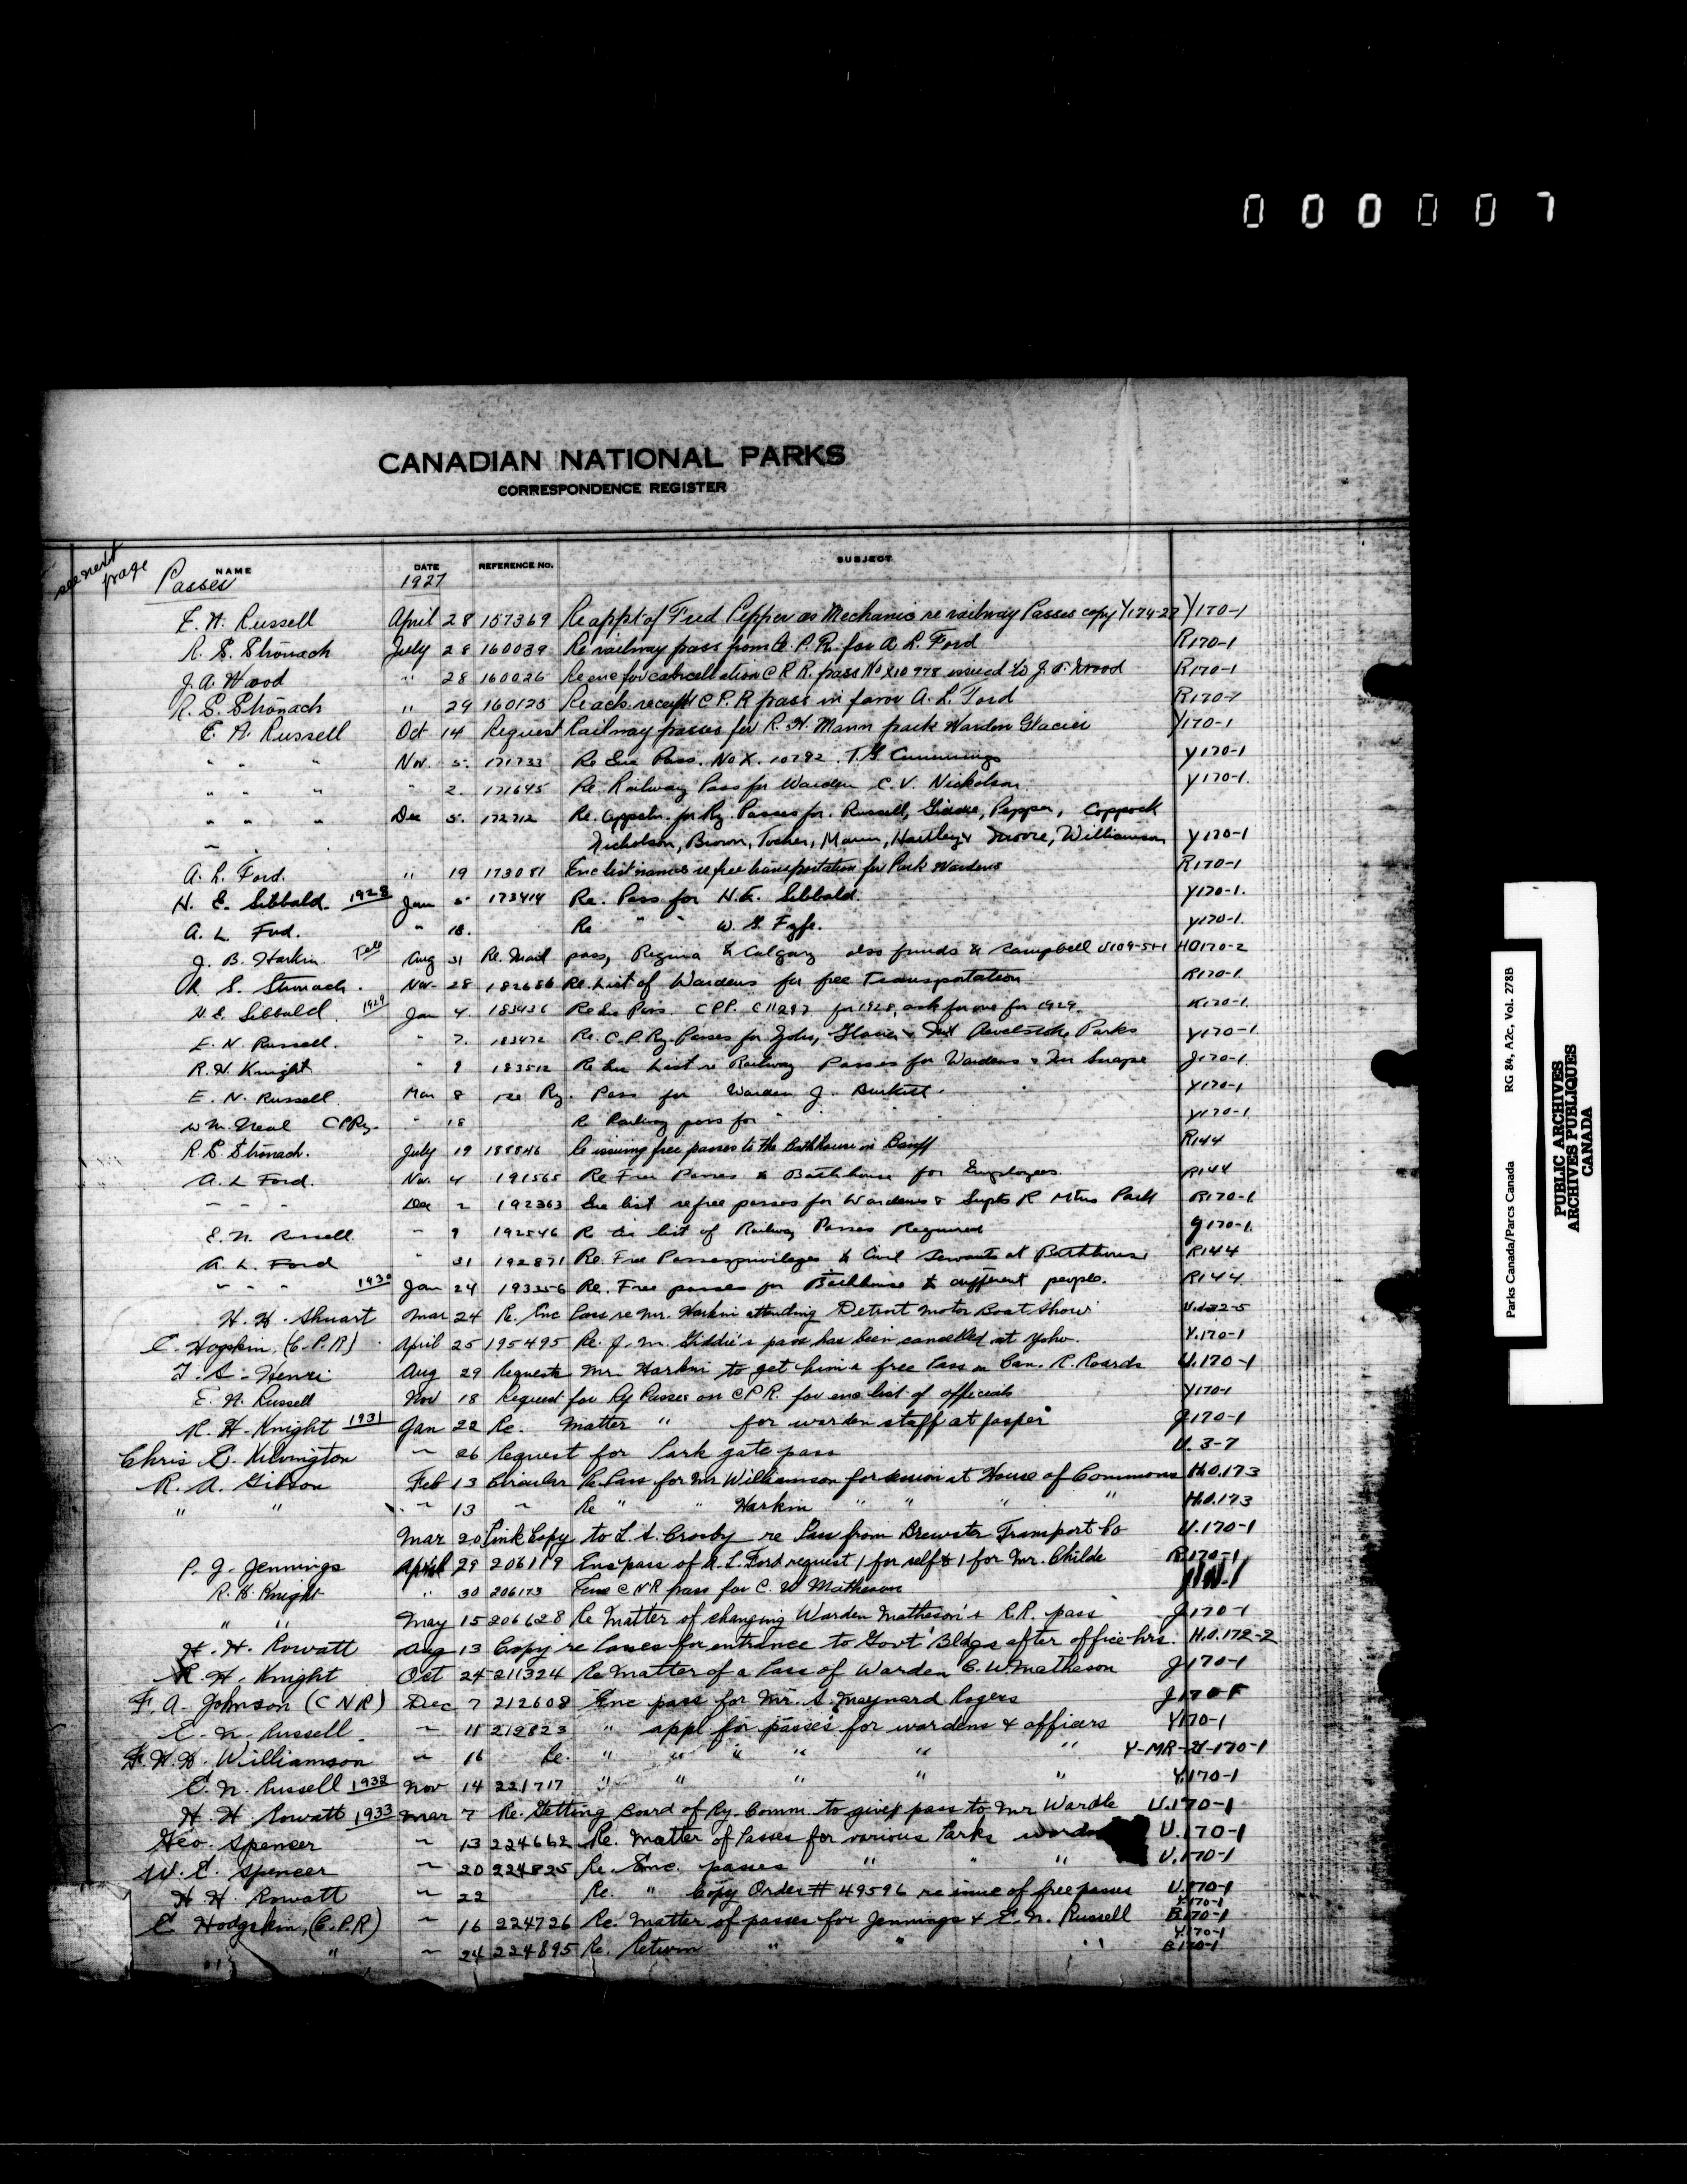 000007
CANADIAN NATIONAL PARKS
CORRESPONDENCE REGISTER
see next page
NAME DATE REFERENCE NO. SUBJECT
Passes 1927
E. N. Russell April 28 157369 Re appt of Fred Pepper as Mechanic re railway Passes copy Y174-27 Y170-1
R. S. Stronach July 28 160039 Re railway pass from C. P. R. for A. L. Ford R170-1
J. A. Wood " 28 160026 Re enc for cancellation C P R. pass No X10778 issued to J. A. Wood R170-1
R. S. Stronach " 29 160125 Re ack. receipt C P. R pass in favor A. L. Ford R170-1
E. N. Russell Oct 14 Request Railway passes for R. H. Mann park Warden Glacier Y170-1
" " " Nov. 5. 171733 Re Enc Pass. No X. 10792 T. G Cummings Y170-1
" " " " 2. 171645 Re. Railway Pass for Warden C. V. Nicholson Y170-1.
" " " Dec 5. 172712 Re. Appctn. for Ry. Passes for. Russell, Giddie, Pepper, Coppock
Nicholson, Brown, Tocher, Mann, Hartley & Moore, Williamson Y170-1
A. L. Ford. " 19 173081 Enc list names re free transportation for Park Wardens R170-1
N. E. Sibbald. 1928 Jan 5 173414 Re. Pass for N. E. Sibbald. Y170-1.
A. L. Ford. " 18. Re " " W. G. Fyfe. Y170-1.
J. B. Harkin Tele Aug 31 Re. Mail pass, Regina & Calgary also funds to Campbell U109-51-1 HO170-2
R. S. Stronach. Nov. 28 182686 Re. List of Wardens for free Transportation R170-1.
N. E. Sibbald. 1929 Jan 4. 183436 Re Enc Pass. C P R. C11297 for 1928, ask for one for 1929. K170-1.
E. N. Russell. " 7. 183472 Re. C. P. Ry. Passes for Yoho, Glacier & Mt Revelstoke Parks Y170-1
R. H. Knight " 9 183512 Re Enc List re Railway Passes for Wardens & Mr Snape J170-1.
E. N. Russell. Mar 8 Re Ry. Pass for Warden J. Burkitt. Y170-1
W. M. Neal C P Ry. " 18 Re Railway pass for " " Y170-1.
R. S. Stronach. July 19 188846 Re issuing free passes to the Bathhouse in Banff R144
A. L Ford. Nov. 4 191565 Re Free Passes to Bathhouse for Employees. R144
" " " Dec 2 192363 Enc list re free passes for Wardens & Supts R Mtns Park R170-1.
E. N. Russell. " 9 192546 Re Enc list of Railway Passes Required Y170-1.
A. L. Ford " 31 192871 Re. Free Passes privileges to Civil Servants at Bathhouse R144
" " " 1930 Jan 24 193356 Re. Free passes for Bathhouse to different people. R144.
H. H. Stuart Mar 24 Re. Enc Pass re Mr. Harkin attending Detroit Motor Boat Show U.132-5
E. Hopkin, (C. P. R) April 25 195495 Re. J. M. Giddie's pass has been cancelled at Yoho. Y.170-1
T. S. Henri Aug 29 Requests Mr. Harkin to get him a free Pass on Can. R. Roads U.170-1
E. N. Russell Nov 18 Request for Ry Passes on C P R. for enc list of officials Y170-1
R. H. Knight 1931 Jan 22 Re. Matter " for warden staff at Jasper J170-1
Chris E. Kilvington " 26 Request for Park gate pass U. 3-7
R. A. Gibson Feb 13 Circular Re Pass for Mr Williamson for session at House of Commons H.O.173
" " " 13 " Re " " Harkin " " " " H.O.173
Mar 20 Pink Copy to L. S. Crosby re Pass from Brewster Transport Co U.170-1
P. J. Jennings April 29 206119 Enc pass of A. L. Ford request 1 for self & 1 for Mr. Childe R170-1
R. H. Knight " 30 206173 Enc C N R pass for C. W Matheson
" " May 15 206628 Re Matter of changing Warden Matheson's R. R. pass J170-1
H. H. Rowatt Aug 13 Copy re Passes for entrance to Govt Bldgs after office hrs. H.O.172-2
R. H. Knight Oct 24 211324 Re Matter of a Pass of Warden C. W. Matheson J170-1
F. A. Johnson (C N R) Dec 7 212608 Enc pass for Mr. S. Maynard Rogers J170-1
E. N. Russell. " 11 212823 " appl for passes for wardens & officers Y170-1
F. H. H. Williamson " 16 Re. " " " " " " Y-MR-G-170-1
E. N. Russell 1932 Nov 14 221717 " " " " " Y.170-1
H. H. Rowatt 1933 Mar 7 Re. Getting Board of Ry. Comm. to give pass to Mr Wardle U.170-1
Geo. Spencer " 13 224662 Re. Matter of Passes for various Parks U.170-1
W. E. Spencer " 20 224825 Re. Enc. passes " " " U.170-1
H. H. Rowatt " 22 Re. " Copy Order # 49596 re issue of free passes U.170-1
E Hodgskin, (C. P. R) " 16 224726 Re. Matter of passes for Jennings & E. N. Russell Y.170-1 B170-1
" " " 24 224895 Re. Return " " " Y.170-1 B170-1
Parks Canada/Parcs Canada RG 84, A2c, Vol. 278B
PUBLIC ARCHIVES
ARCHIVES PUBLIQUES
CANADA